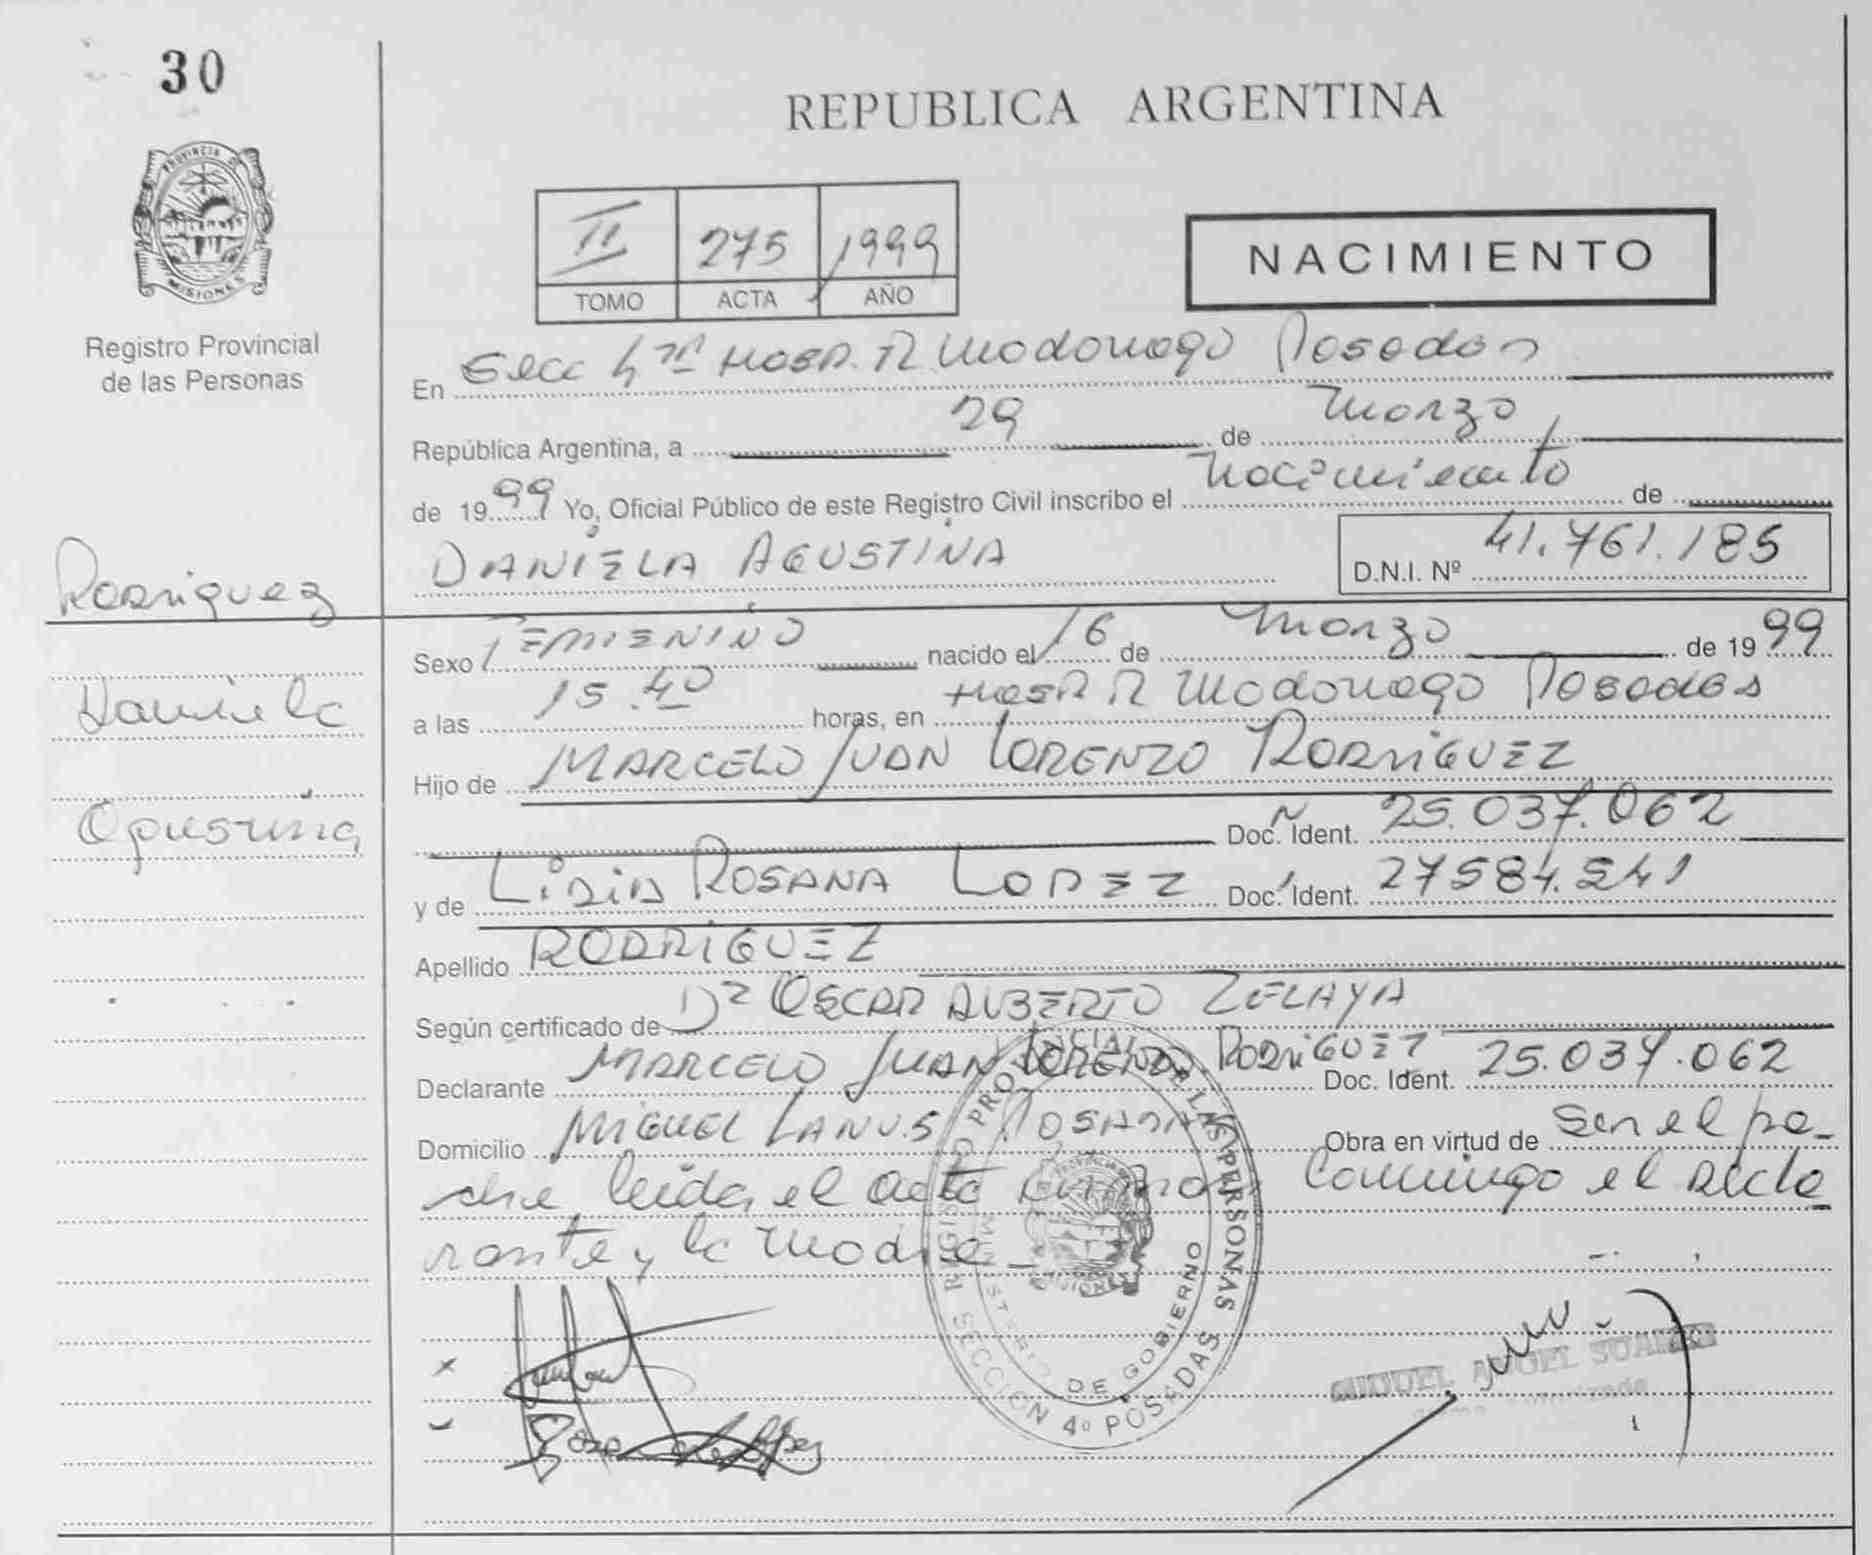 30
PROVINCIA DE
MISIONES
Registro Provincial
de las Personas
REPUBLICA ARGENTINA
II 275 1999
TOMO ACTA AÑO
NACIMIENTO
En Secc 4ta Hosp. R Madariaga Posadas
República Argentina, a 29 de Marzo
de 1999 Yo, Oficial Público de este Registro Civil inscribo el nacimiento de
DANIELA AGUSTINA D.N.I. Nº 41.761.185
Rodriguez
Daniela
Agustina
Sexo FEMENINO nacido el 16 de Marzo de 1999
a las 15.40 horas, en Hosp R Madariaga Posadas
Hijo de MARCELO JUAN LORENZO RODRIGUEZ
Doc. Ident. 25.037.062
y de LIDIA ROSANA LOPEZ Doc. Ident. 27584.541
Apellido RODRIGUEZ
Según certificado de Dr OSCAR ALBERTO ZELAYA
Declarante MARCELO JUAN LORENZO RODRIGUEZ Doc. Ident. 25.037.062
Domicilio MIGUEL LANUS POSADAS Obra en virtud de Ser el pa-
dre leida el acta firman conmigo el decla
rante y la madre
REGISTRO PROVINCIAL DE LAS PERSONAS
MINISTERIO DE GOBIERNO
MISIONES
SECCION 4º POSADAS
MIGUEL ANGEL SUAREZ